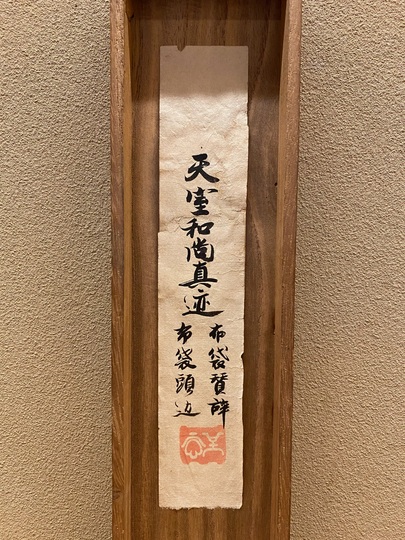 天室和尚真迹
布袋賛辞
布袋頭辺